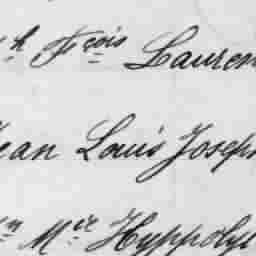 h Fçois Lauren
Jean Louis Joseph
n Mie Hyppolyt